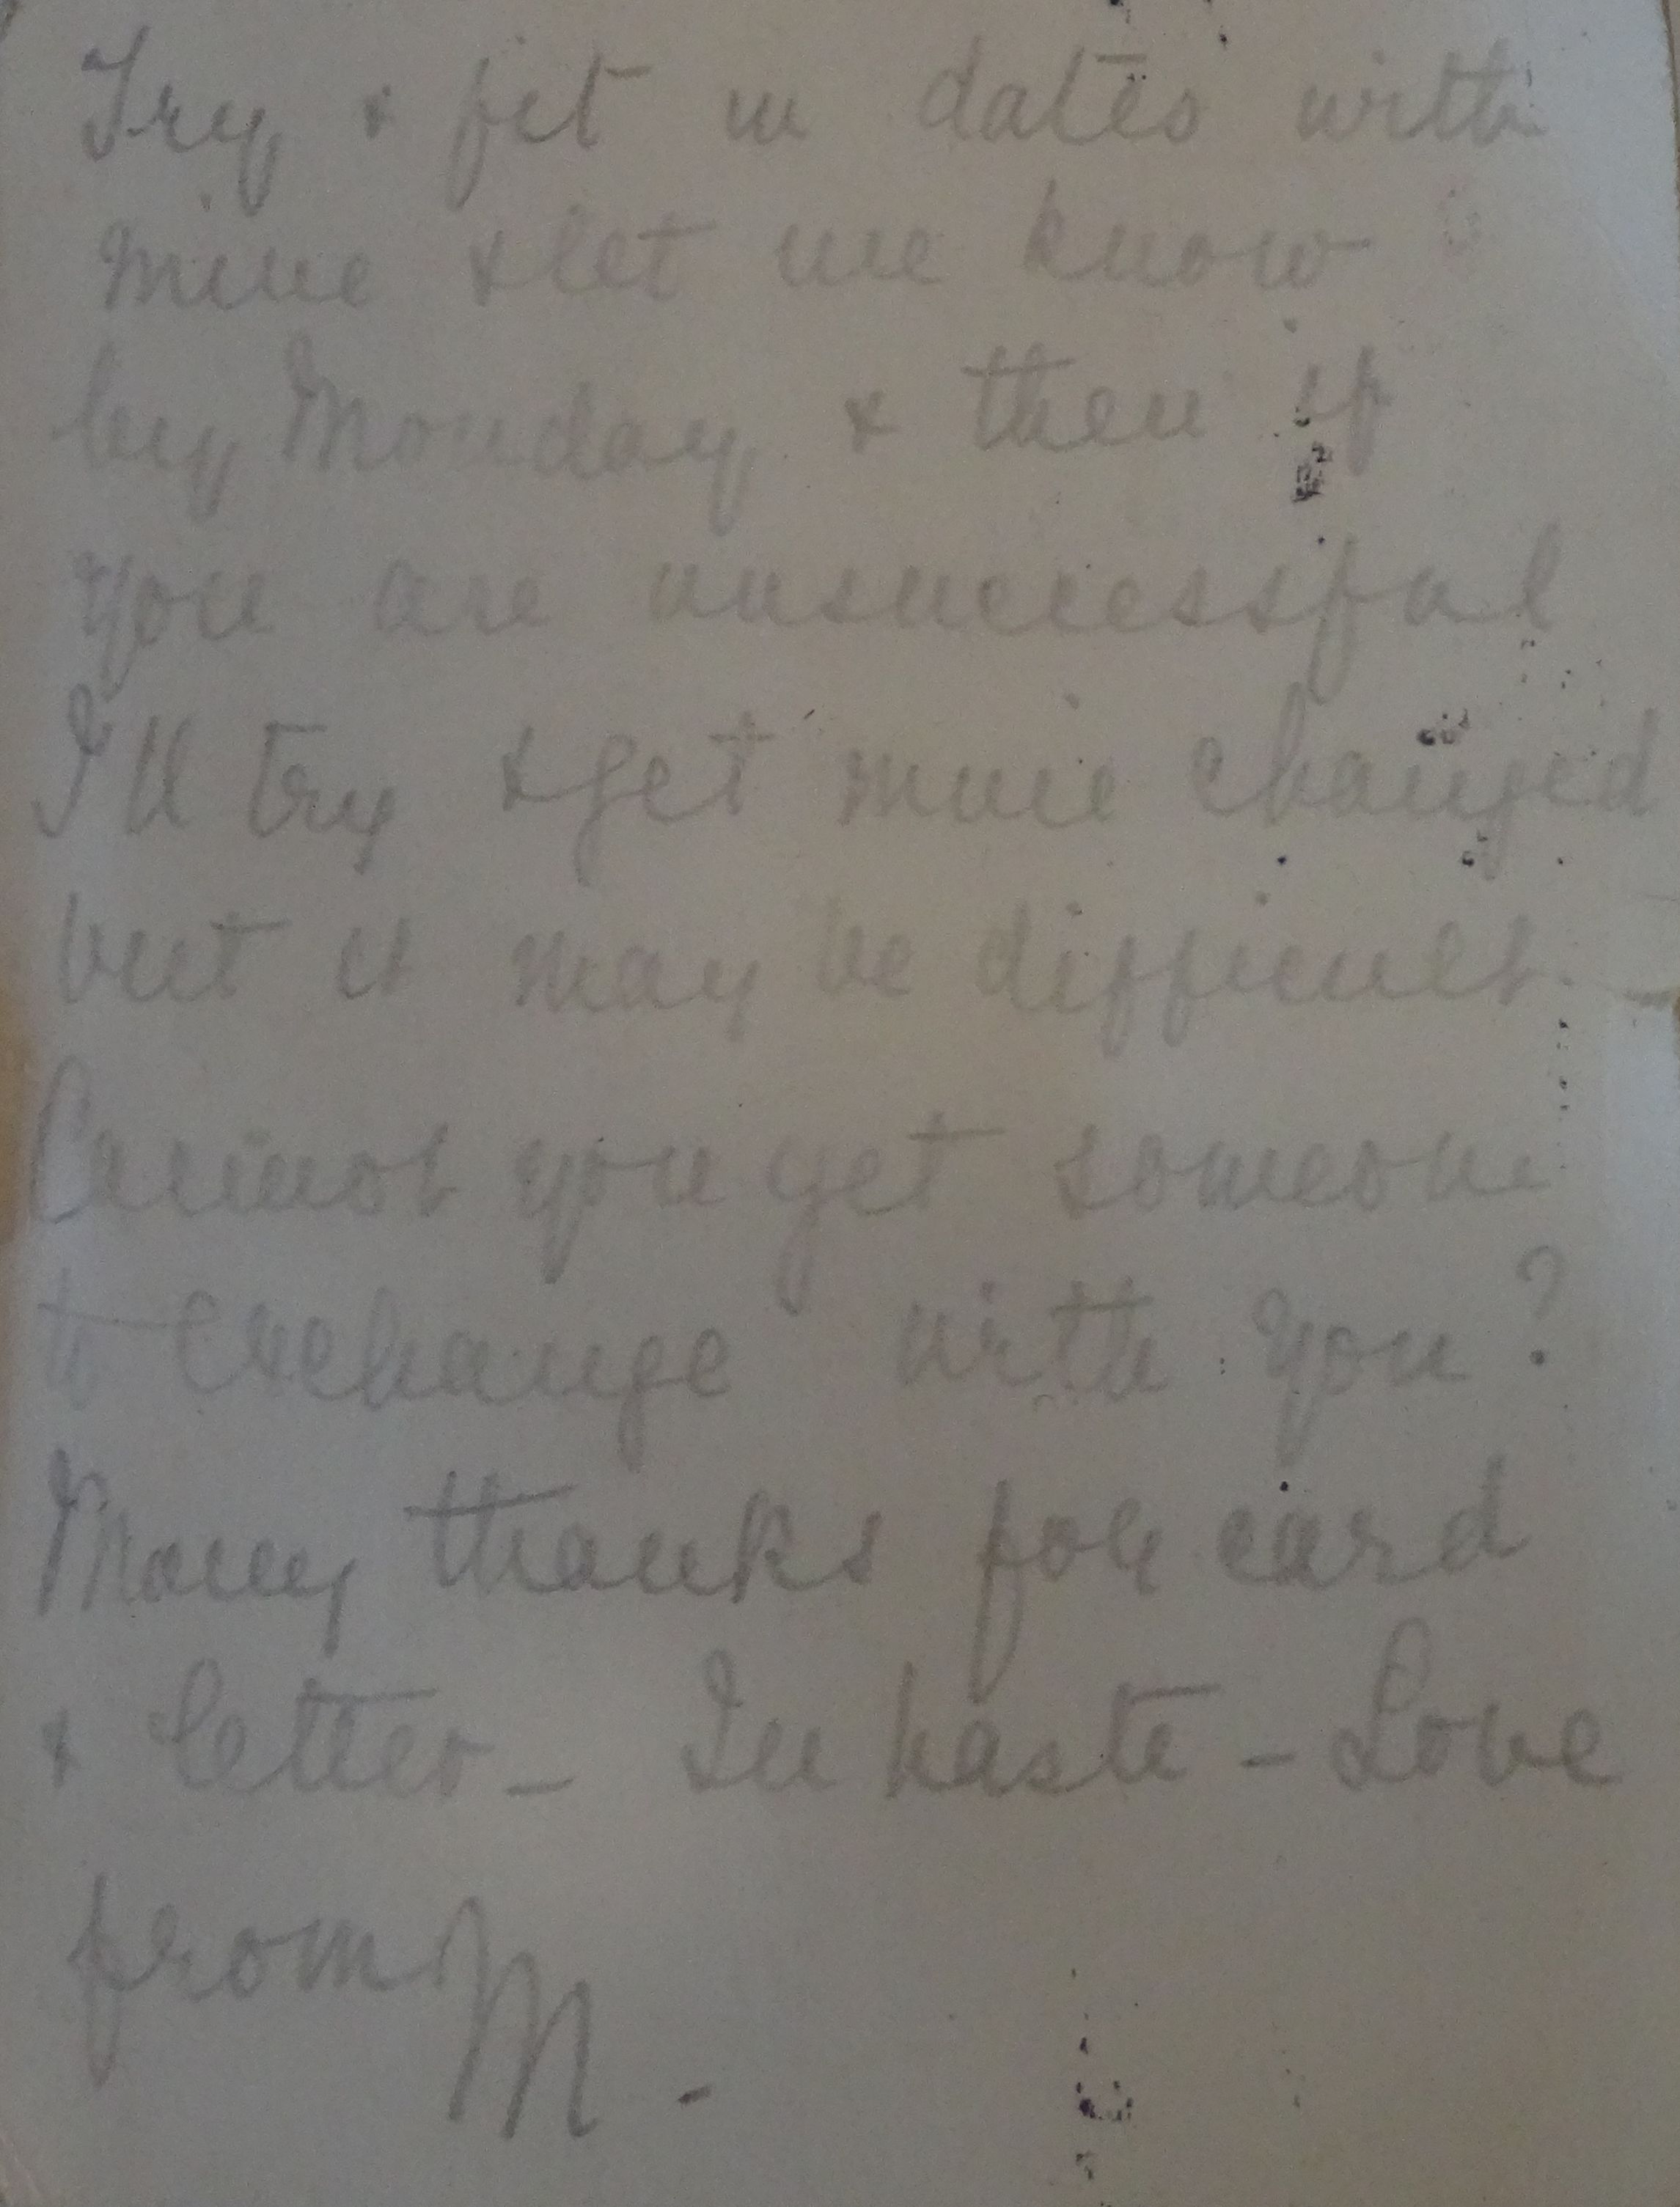 Try & fit in dates with
mine & let me know
by Monday & then if
you are unsuccessful
I'll try & get mine changed
but it may be difficult.
Cannot you get someone
to exchange with you?
Many thanks for card
& letter – In haste – Love
from M.